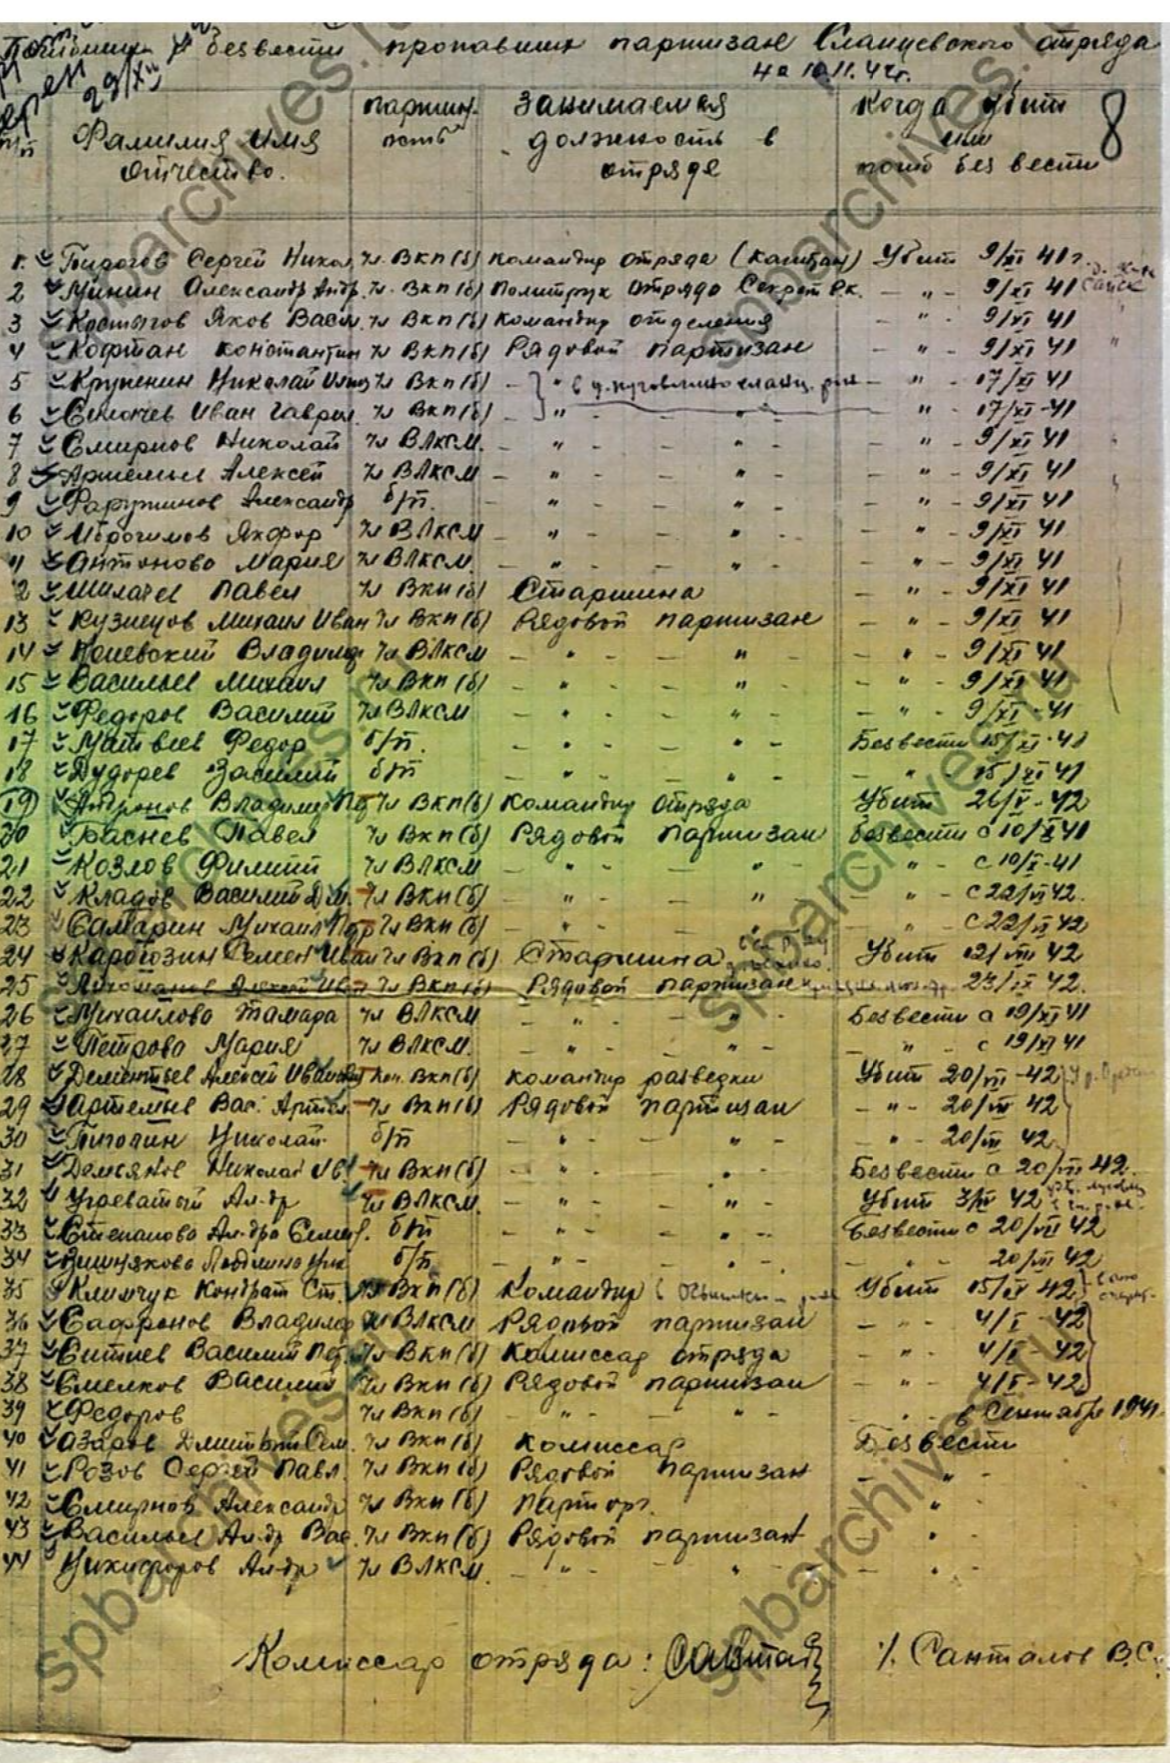 безвести пропавших партизан Сланцевского отряда
на 10.11.42г.
29/XII
Фамилия Имя Отчество.
занимаемая должность в отряде
Когда убит или погиб без вести
8
1. Пирогов Сергей Никол чл ВКП(б) командир отряда (капитан) Убит 9/XI 41г.
2 Минин Александр Андр. чл. ВКП(б) политрук отряда Секрет Рк. - " - 9/XI 41
3 Костыгов Яков Васил. чл ВКП(б) командир отделения - " - 9/XI 41
4 Кофтан Константин чл ВКП(б) Рядовой партизан - " - 9/XI 41
5 Крупенин Николай чл ВКП(б) - " - " - 17/XI 41
6 Иван Гаврил. чл ВКП(б) - " - " - " - 17/XI-41
7 Смирнов Николай чл ВЛКСМ. - " - - " - - " - 9/XI 41
8 Артемьев Алексей чл ВЛКСМ - " - - " - - " - 9/XI 41
9 Александр б/п. - " - - " - - " - 9/XI 41
10 чл ВЛКСМ - " - - " - - " - 9/XI 41
11 Антонова Мария чл ВЛКСМ. - " - - " - - " - 9/XI 41
2 Шилачев Павел чл ВКП(б) Старшина - " - 9/XI 41
13 Кузнецов Михаил Иван чл ВКП(б) Рядовой партизан - " - 9/XI 41
14 Владимир чл ВЛКСМ - " - - " - - " - 9/XI 41
15 Васильев Михаил чл ВКП(б) - " - - " - - " - 9/XI 41
16 Федоров Василий чл ВЛКСМ - " - - " - - " - 9/XI-41
17 Матвеев Федор б/п. - " - - " - Безвести 15/XI-41
18 Дударев Василий б/п - " - - " - - " - 15/XI 41
19 Владимир чл ВКП(б) командир отряда Убит 26/V-42
20 Баснев Павел чл ВКП(б) Рядовой партизан безвести с 10/X 41
21 Козлов Филипп чл ВЛКСМ - " - - " - - " - с 10/X-41
22 Кладов Василий чл ВКП(б) - " - - " - - " - с 22/VI 42.
23 Самарин Михаил чл ВКП(б) - " - - " - - " - с 22/VI 42
24 Семен Иван чл ВКП(б) Старшина Убит 21/VIII 42
25 чл ВКП(б) Рядовой партизан 23/IX 42.
26 Михайлова Тамара чл ВЛКСМ - " - - " - Безвести с 19/XI 41
27 Петрова Мария чл ВЛКСМ. - " - - " - - " - с 19/XI 41
28 Дементьев Алексей Иванов ВКП(б) командир разведки Убит 20/VII-42
29 Артемьев Вас. чл ВКП(б) Рядовой партизан - " - 20/VII 42
30 Пиголин Николай б/п - " - - " - - " - 20/VII 42
31 Демьянов Николай Ив. чл ВКП(б) - " - - " - Безвести с 20/VII 42.
32 Угреватый Ал-др чл ВЛКСМ. - " - - " - Убит 42
33 Степанова Ал-дра Семен. б/п - " - - " - Безвести с 20/VII 42
34 Вишнякова Людмила Ник б/п. - " - - " - 20/VII 42
35 Климчук Кондрат Ст. чл ВКП(б) Командир Убит 42
36 Сафронов Владимир чл ВЛКСМ Рядовой партизан - " - 4/I-42
37 Ситнев Василий Пет. чл ВКП(б) комиссар отряда - " - 4/I-42
38 Смелков Василий чл ВКП(б) Рядовой партизан - " - 4/I-42
39 Федоров чл ВКП(б) - " - - " - - " - в Сентябре 1941
40 Азаров Дмитрий Сем. чл ВКП(б) комиссар Безвести
41 Розов Сергей Павл. чл ВКП(б) Рядовой партизан - " -
42 Смирнов Александр чл ВКП(б) парторг. - " -
43 Васильев Ал-др Вас. чл ВКП(б) Рядовой партизан - " -
44 Никифоров Ал-др чл ВЛКСМ. - " - - " - - " -
Комиссар отряда: /. Санталов В.С.
spbarchives.ru